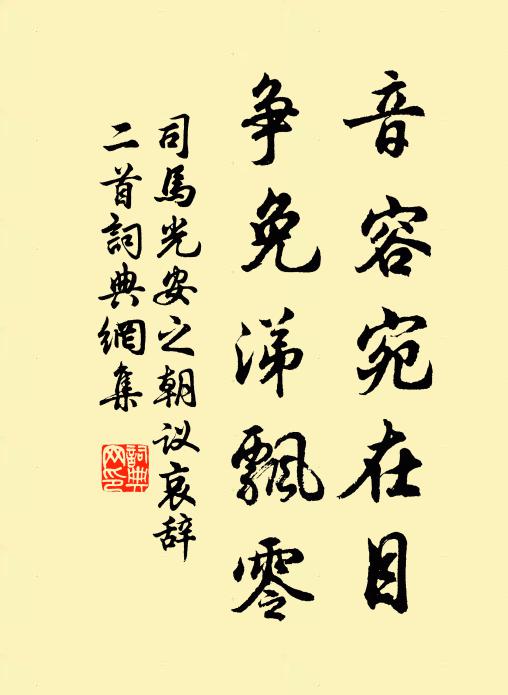 音容宛在目
争免涕飄零
司馬光安之朝议哀辞
二首詞典網集
詞典
网印